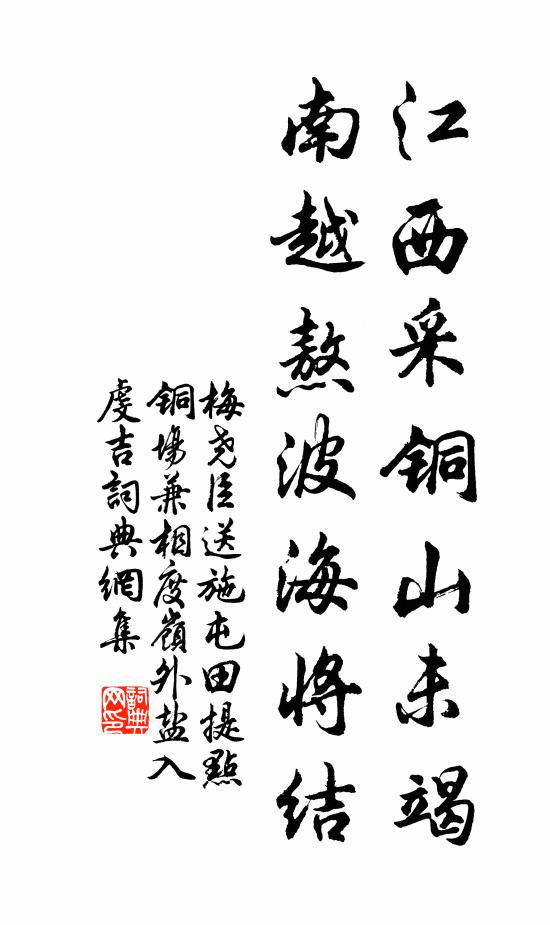 江西采铜山未竭
南越熬波海将结
梅尧臣送施屯田提點
铜場兼相度嶺外盐入
虔吉詞典網集
詞典网印